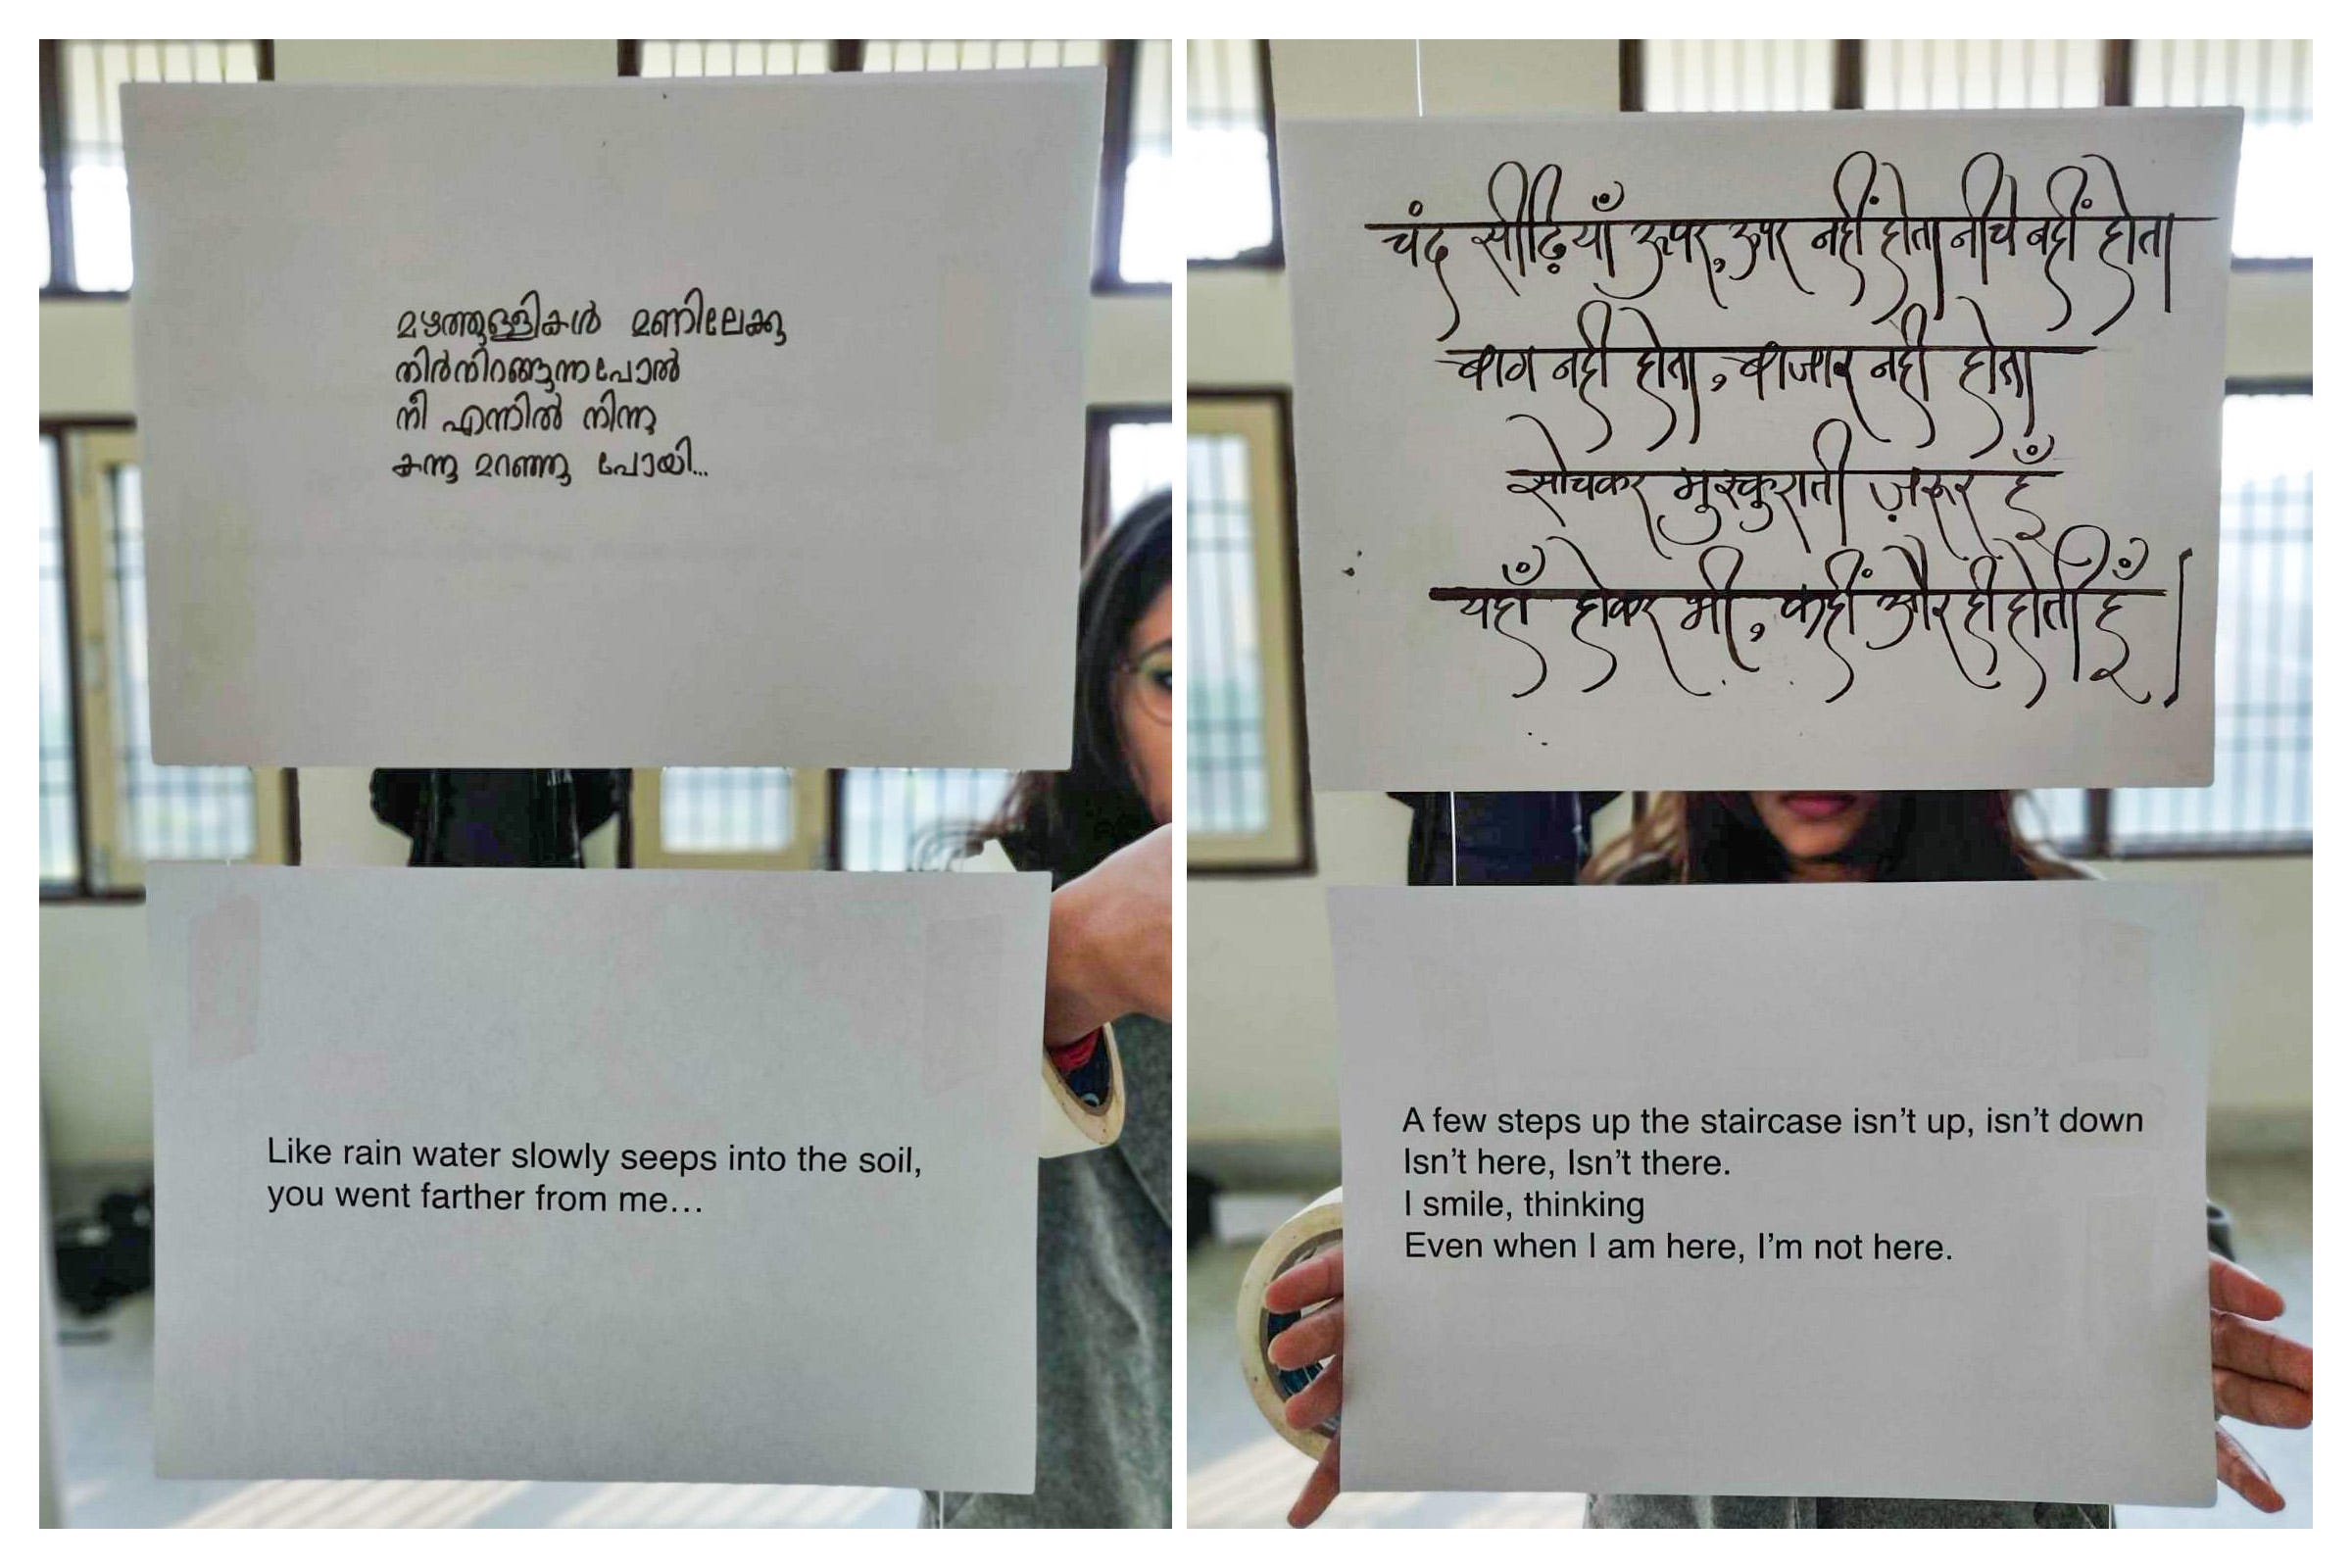 മഴത്തുള്ളികൾ മണിലേക്കു
നിർന്നിറങ്ങുന്നപോൽ
നീ എന്നിൽ നിന്നു
കന്നു മറഞ്ഞു പോയി...
Like rain water slowly seeps into the soil,
you went farther from me...
चंद सीढ़ियाँ ऊपर, ऊपर नहीं होता नीचे नहीं होता
बाग नहीं होता, बाजार नहीं होता
सोचकर मुस्कुराती ज़रूर हूँ
यहाँ होकर भी, कहीं और ही होती हूँ।
A few steps up the staircase isn't up, isn't down
Isn't here, Isn't there.
I smile, thinking
Even when I am here, I'm not here.